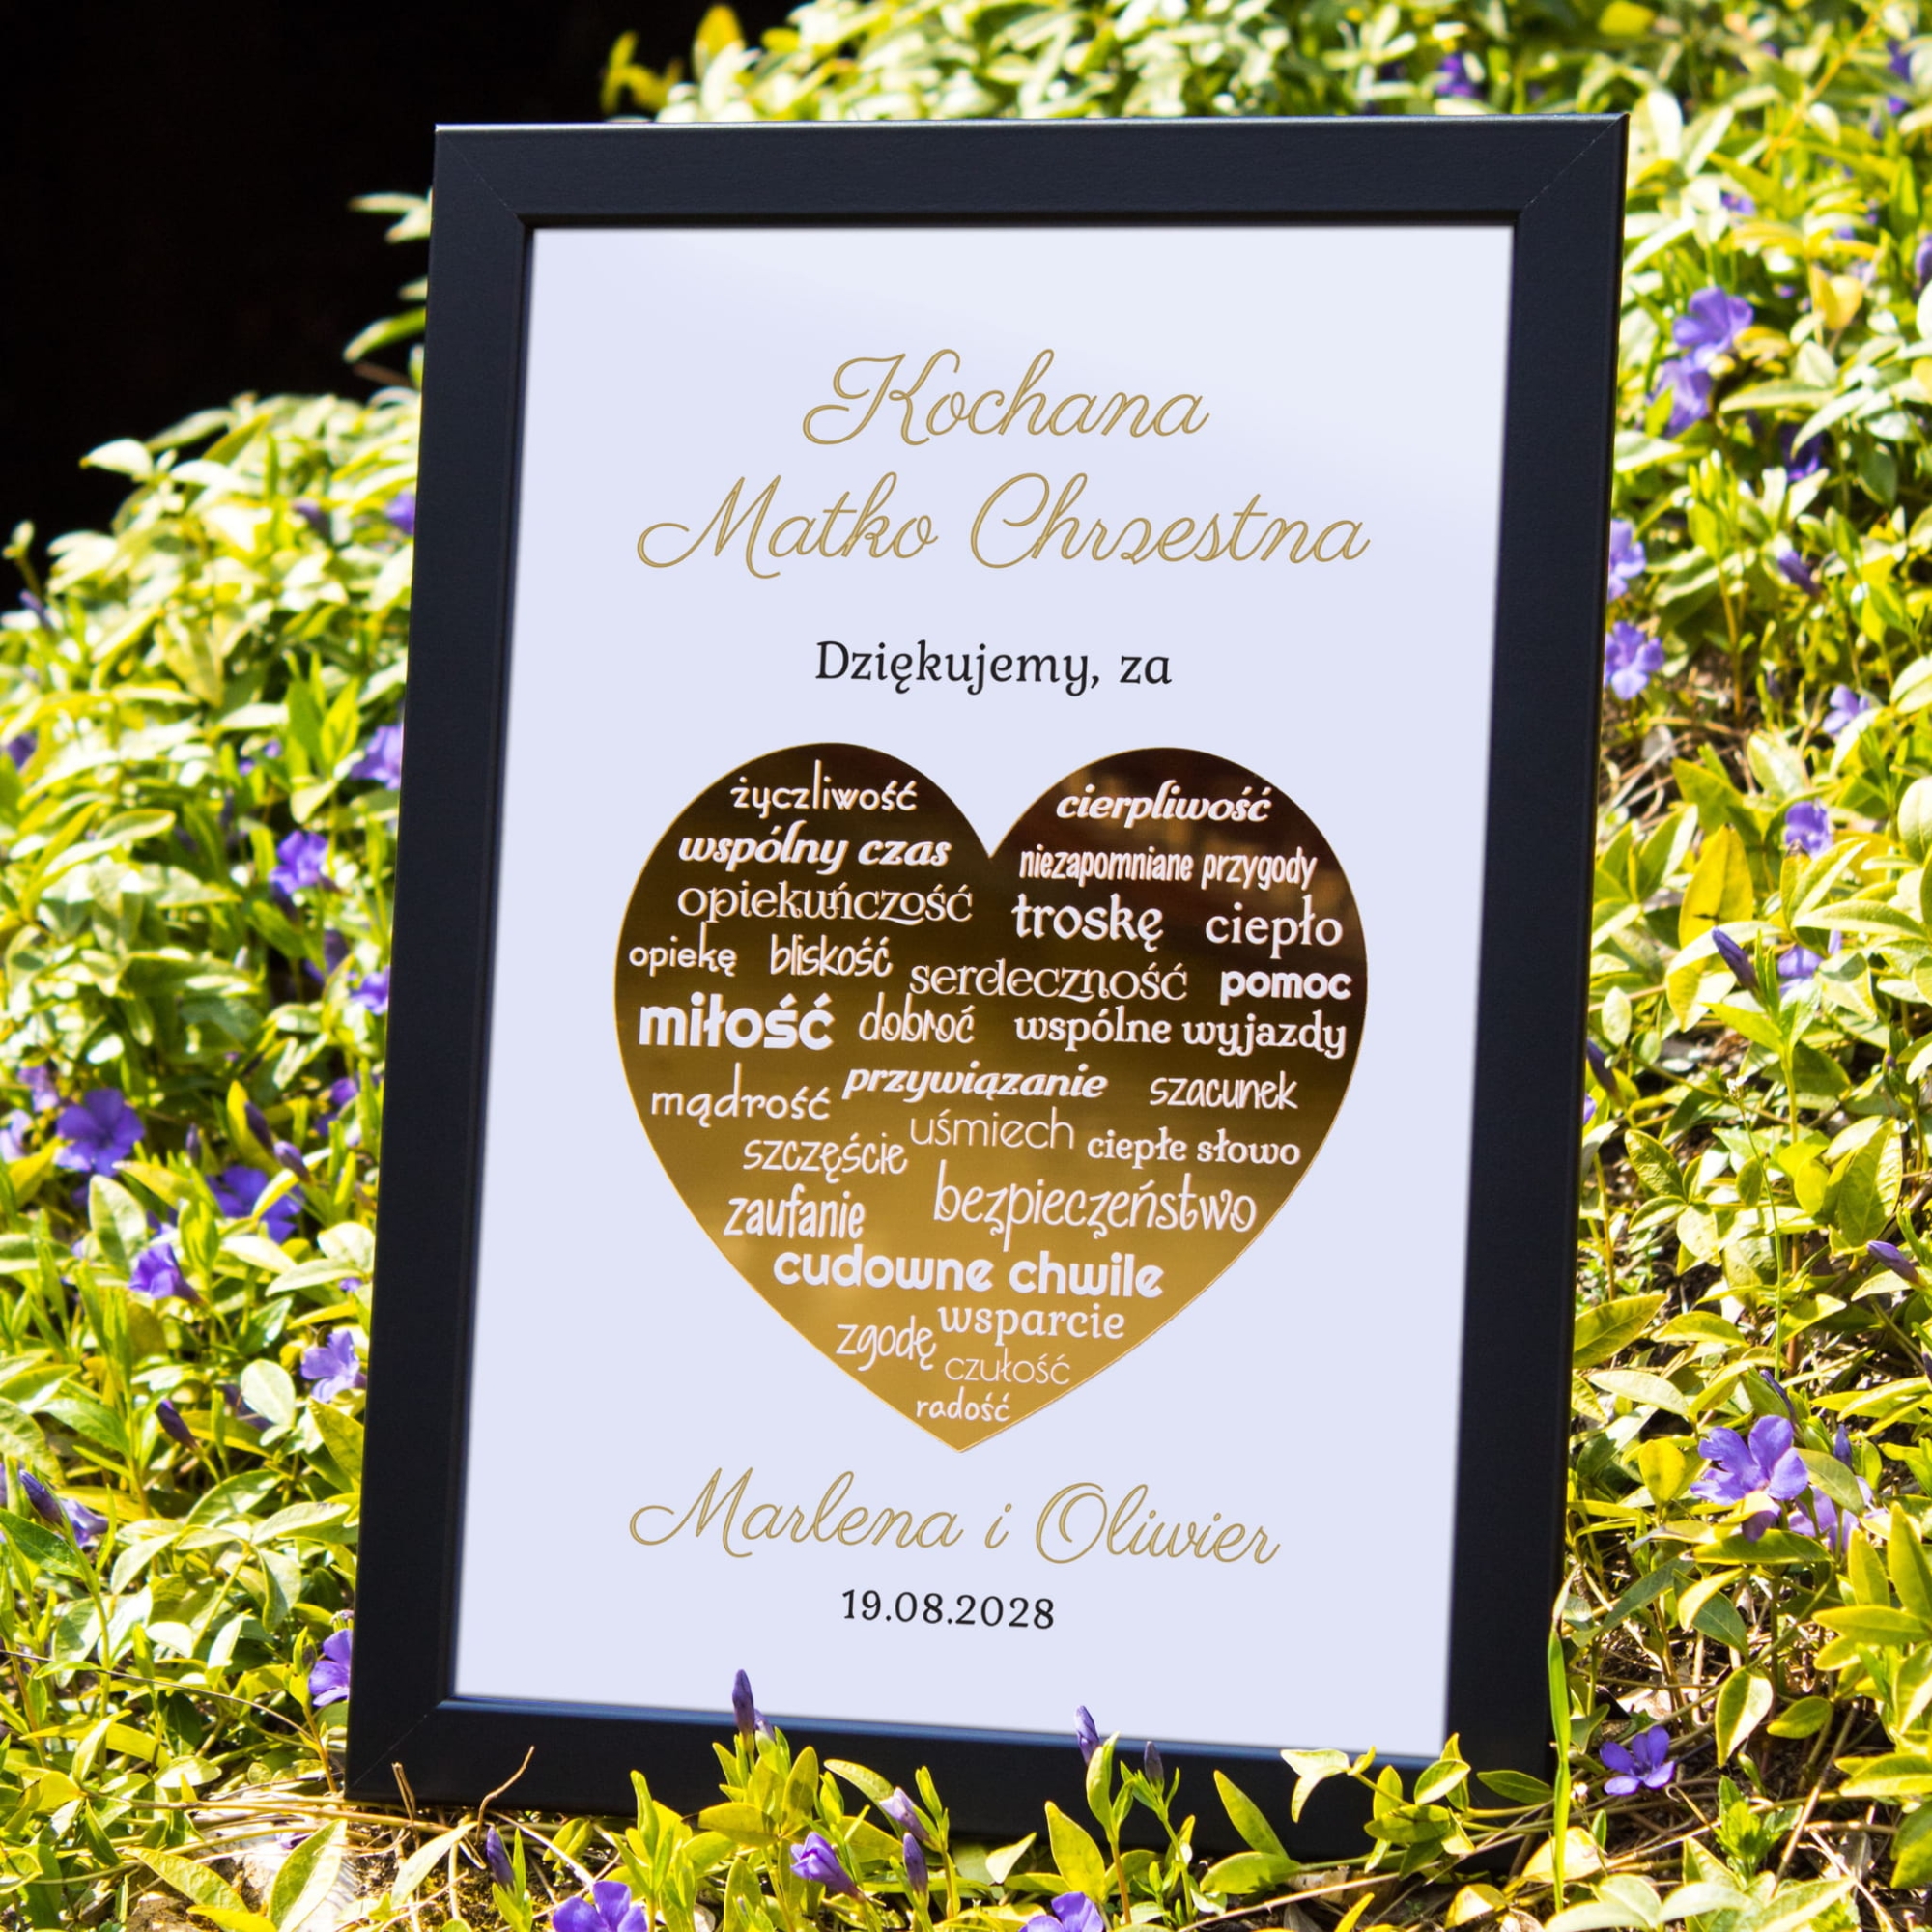 Kochana
Matko Chrzestna
Dziękujemy, za
życzliwość
cierpliwość
wspólny czas
niezapomniane przygody
opiekuńczość
troskę ciepło
opiekę bliskość
serdeczność pomoc
miłość dobroć wspólne wyjazdy
przywiązanie szacunek
mądrość
uśmiech ciepłe słowo
szczęście
zaufanie bezpieczeństwo
cudowne chwile
wsparcie
zgodę
czułość
radość
Marlena i Oliwier
19.08.2028